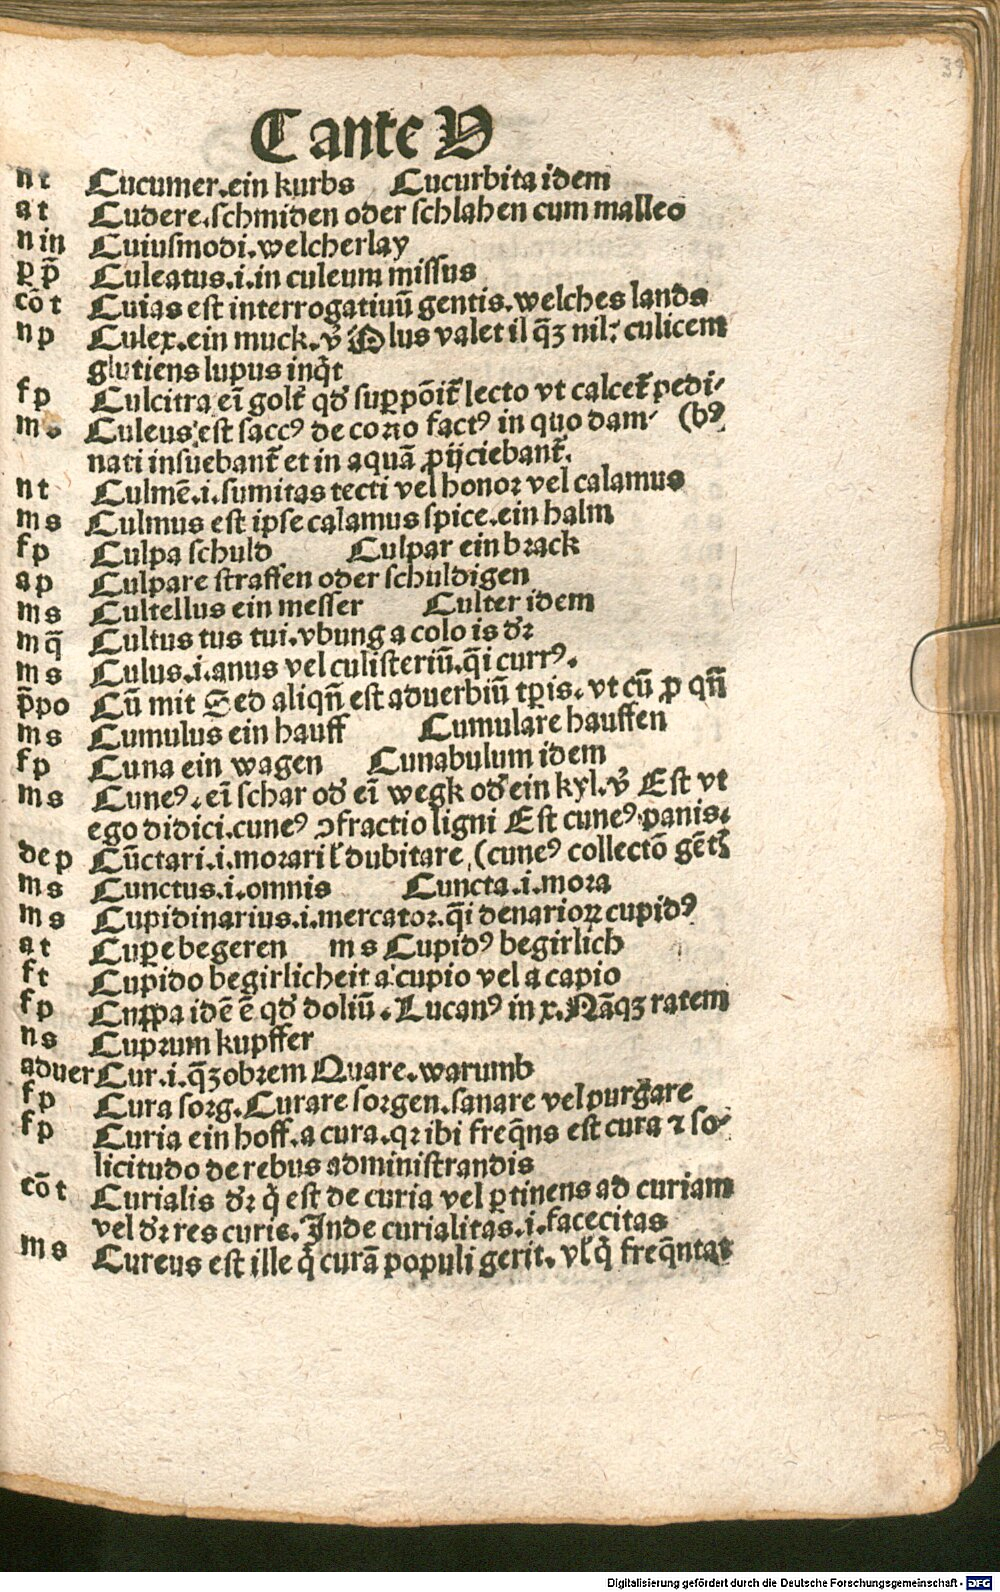 39
C ante V
n t Cucumer.ein kurbs Cucurbita idem
a t Cudere.schmiden oder schlahen cum malleo
n in Cuiusmodi.welcherlay
p p̄ Culeatus.i.in culeum missus
cō t Cuias est interrogatiuū gentis.welches lands
n p Culex.ein muck.v̓ Plus valet il qꝫ nil: culicem
glutiens lupus inq̇t
f p Culcitra eī golt̄ qđ suppōit̄ lecto vt calcet̄ pedi⸗
m s Culeus est saccꝰ de corio factꝰ in quo dam⸗ (bꝰ
nati insuebant̄ et in aquā ꝓijciebant̄.
n t Culmē.i.sumitas tecti vel honor vel calamus
m s Culmus est ipse calamus spice.ein halm
f p Culpa schuld Culpar ein brack
a p Culpare straffen oder schuldigen
m s Cultellus ein messer Culter idem
m q̄ Cultus tus tui.vbung a colo is đꝛ
m s Culus.i.anus vel culisteriū.q̄i currꝰ.
p̄po Cū mit Sed aliqn̄ est aduerbiū tꝑis.vt cū ꝓ qn̄
m s Cumulus ein hauff Cumulare hauffen
f p Cuna ein wagen Cunabulum idem
m s Cuneꝰ.eī schar ođ eī wegk ođ ein kyl.v̓ Est vt
ego didici.cuneꝰ ↄfractio ligni Est cuneꝰ panis:
de p Cūctari.i.morari ł dubitare (cuneꝰ collectō gēt
m s Cunctus.i.omnis Cuncta.i.mora
m s Cupidinarius.i.mercator.q̄i denarioꝝ cupidꝰ
a t Cuꝑe begeren m s Cupidꝰ begirlich
f t Cupido begirlicheit a cupio vel a capio
f p Cuppa idē ē qđ doliū.Lucanꝰ in x.Nāqꝫ ratem
n s Cuprum kupffer
aduer Cur.i.qꝫobrem Quare.warumb
f p Cura sorg.Curare sorgen.sanare vel purgare
f p Curia ein hoff.a cura.qꝛ ibi freq̄ns est cura ⁊ so⸗
licitudo de rebus administrandis
cō t Curialis đꝛ q̇ est de curia vel ꝑtinens ad curiam
vel đꝛ res curis.Inde curialitas.i.facecitas
m s Cureus est ille q̇ curā populi gerit.vł q̇ freq̄ntat
Digitalisierung gefördert durch die Deutsche Forschungsgemeinschaft - DFG